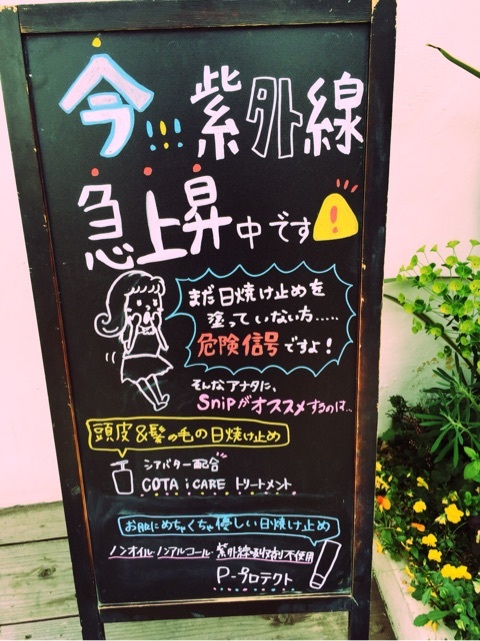 今!!! 紫外線
急上昇中です!
まだ日焼け止めを
塗っていない方.....
危険信号ですよ!
そんなアナタに、
Snipがオススメするのは...
頭皮&髪の毛の日焼け止め
シアバター配合
COTA i CARE トリートメント
お肌にめちゃくちゃ優しい日焼け止め
ノンオイル・ノンアルコール・紫外線吸収剤不使用
P-プロテクト